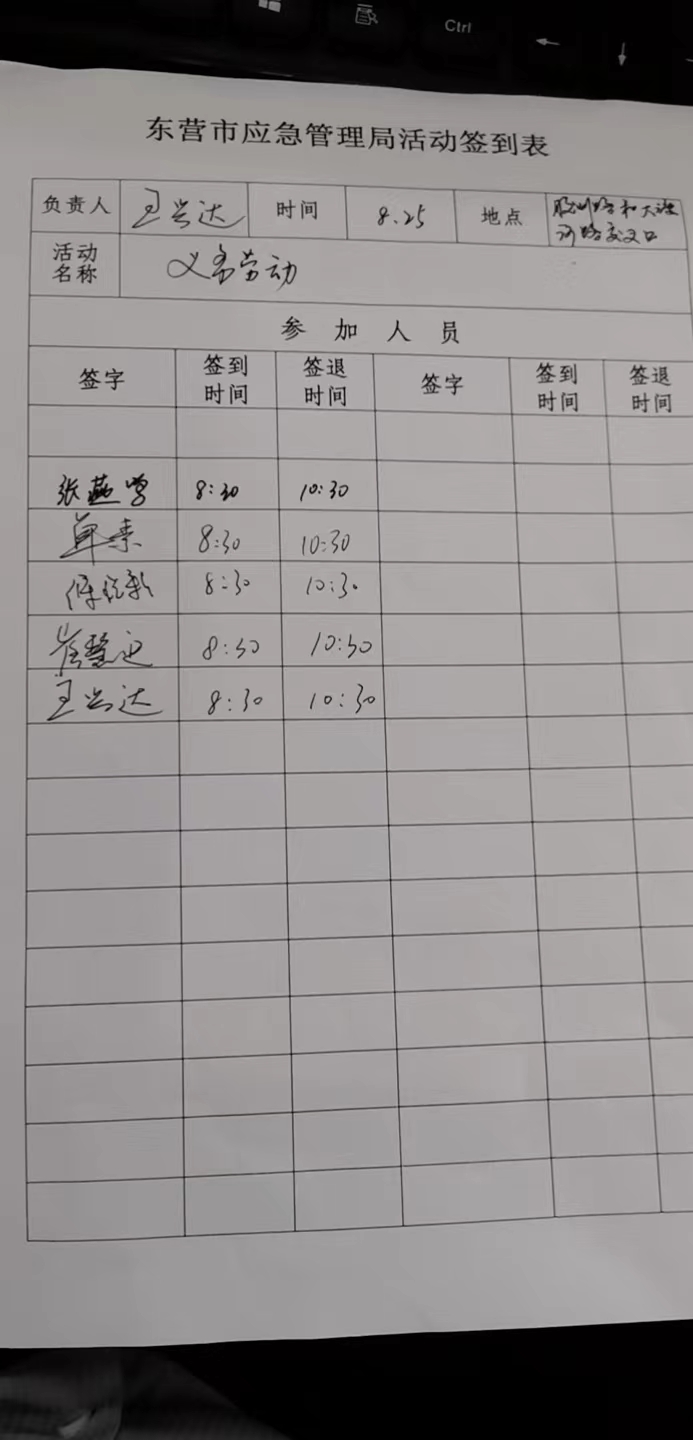 Ctrl
东营市应急管理局活动签到表
负责人 王兴达 时间 8.25 地点 胶州路和大渡河路交叉口
活动名称 义务劳动
参加人员
签字 签到时间 签退时间 签字 签到时间 签退时间
张燕学 8:30 10:30
单素 8:30 10:30
8:30 10:30
崔慧 8:30 10:30
王兴达 8:30 10:30